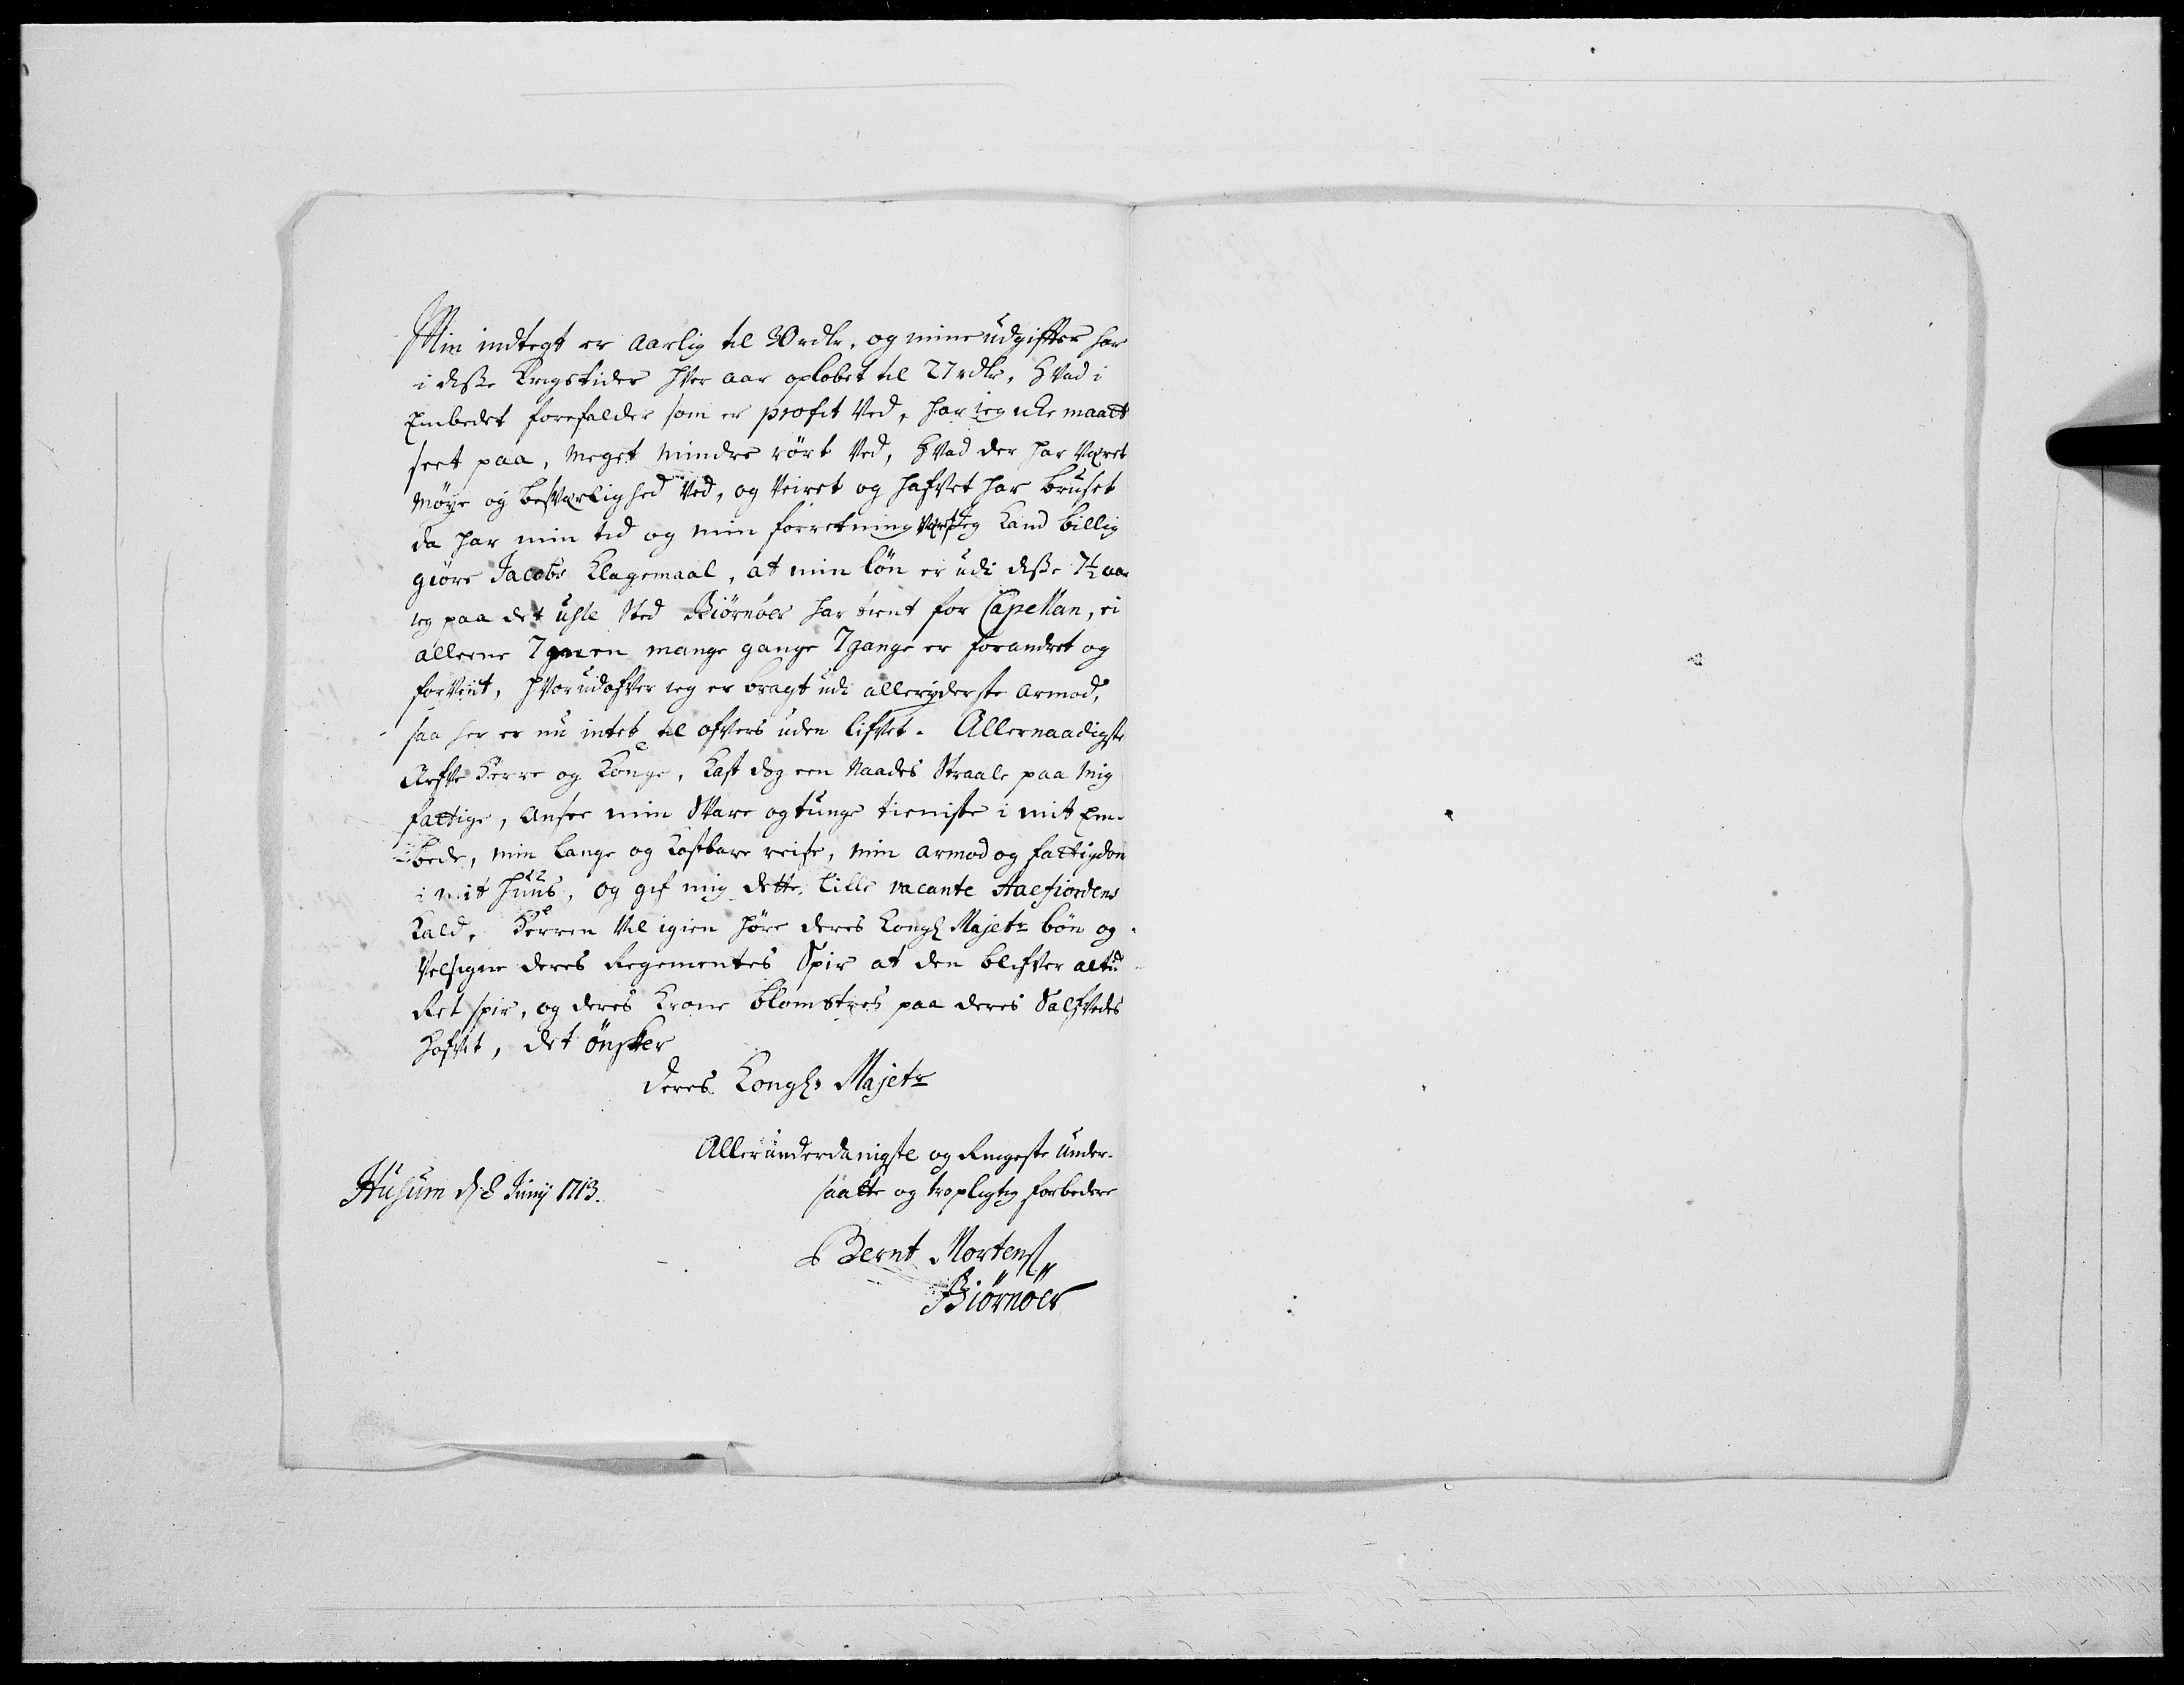 Min indtegt er aarlig til 30 rdlr. og mine udgifter har
i disse Krigstider hver aar opløbet til 27 rdlr. Hvad i
Embedet forefalder som er profit ved, har ieg icke maatt
seet paa, meget mindre rört ved, Hvad der har været
möye og besværlighed ved, og Veiret og hafvet har bruset
da har min tid og min forretning været. Jeg kand billig
giöre Jacobs Klagemaal, at min lön er udi disse 7½ aar
ieg paa det usle sted Biörnöer har tient for Capellan, ei
alleene 7 men mange gange 7 gange er forandret og
forvent, hvorudofver ieg er bragt udi alleryderste armod,
saa her er nu intet til ofvers uden lifvet. Allernaadigste
Arfve Herre og Konge, Kast dog een Naades Straale paa mig
fattige, Ansee min Svare og tunge tieniste i mit Em-
bede, min lange og Kostbare reise, min armod og fattigdom
i mit huus, og gif mig dette lille vacante Aaefiordens
Kald, Herren vil igien höre deres Kongl Majets bön og
Velsigne deres Regementes Spir at den blifver altid
Ret spir, og deres Krone blomstres paa deres Salfvedes
Hofvet, det önsker
Deres Kongl. Majets
Allerunderdanigste og Ringeste Under-
Husum d 8 Junij 1713.
saatte og tropligtig forbedere
Bernt Mortens
Biörnöer